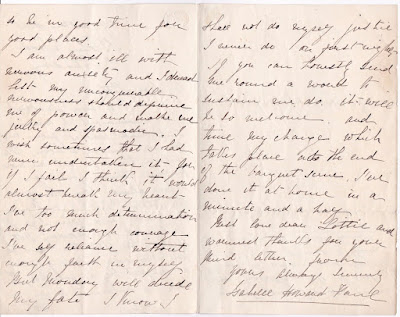 to be in good time for
good places.
I am almost ill with
nervous anxiety and I dread
lest my unconquerable
nervousness should deprive
me of power and make me
jerky and spasmodic. I
wish sometimes that I had
never undertaken it - for
if I fail I think it would
almost break my heart
I've too much determination
and not enough courage
I've self reliance without
enough faith in myself
But Monday will decide
My fate I know!
shall not do myself justice
I never do on first nights
If you can honestly send
me round a word to
sustain me do. it will
be so welcome. and
time my change which
takes place into the end
of the banquet scene. I've
done it at home in a
minute and a half
Best love dear Lottie and
warmest thanks for your
kind letter.
yours always sincerely
Isabelle Howard Paul